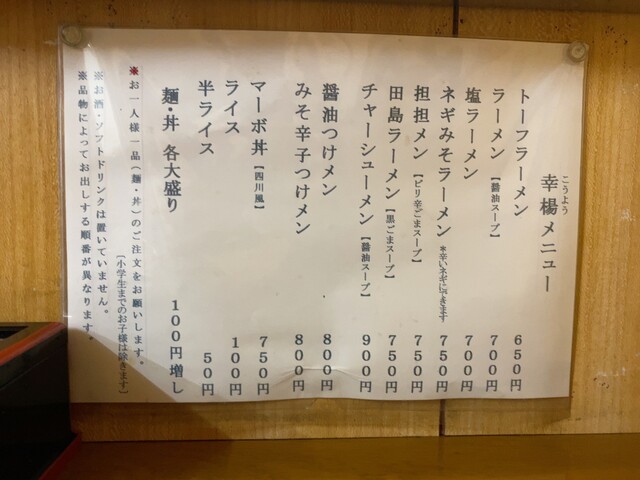 こうよう
幸楊メニュー
トーフラーメン 650円
ラーメン【醤油スープ】 700円
塩ラーメン 700円
ネギみそラーメン *辛いネギにできます 750円
担担メン【ピリ辛ごまスープ】 750円
田島ラーメン【黒ごまスープ】 750円
チャーシューメン【醤油スープ】 900円
醤油つけメン 800円
みそ辛子つけメン 800円
マーボ丼【四川風】 750円
ライス 100円
半ライス 50円
麺・丼 各大盛り 100円増し
※お一人様一品(麺・丼)のご注文をお願いします。
〔小学生までのお子様は除きます〕
※お酒・ソフトドリンクは置いていません。
※品物によってお出しする順番が異なります。